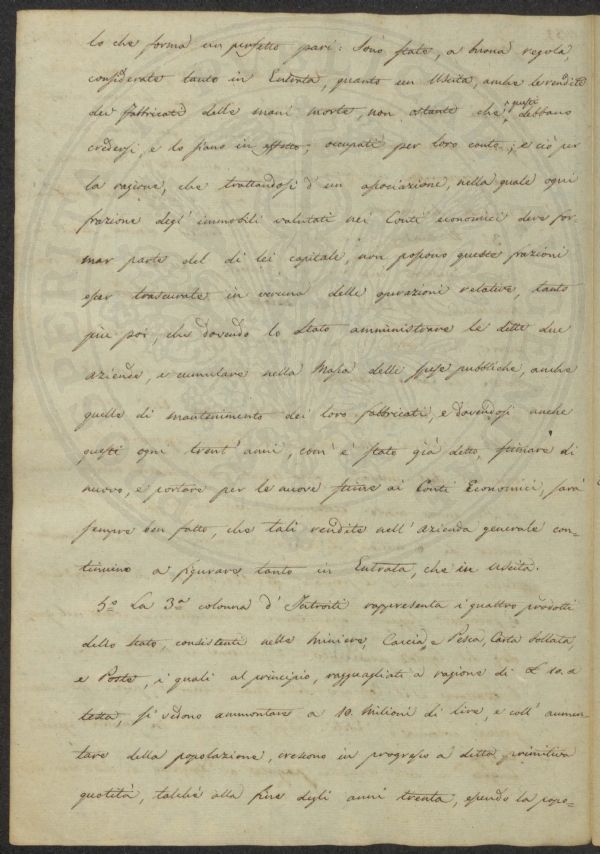 lo che forma un perfetto pari: Sono state, a buona regola,
considerate tanto in Entrata, quanto in Uscita, anche le rendite
dei fabbricati delle mani morte, non ostante che questi debbano
credersi, e lo siano in effetto, occupati per loro conto; e ciò per
la ragione, che trattandosi d'un associazione, nella quale ogni
frazione degl'immobili valutati nei Conti economici deve for-
mar parte del di lei capitale, non possono queste frazioni
esser trascurate in veruna delle operazioni relative, tanto
più poi, che dovendo lo Stato amministrare le dette due
aziende, e cumulare nella Massa delle spese pubbliche, anche
quelle di mantenimento dei loro fabbricati, e dovendosi anche
questi ogni trent'anni, com'è stato già detto, stimare di
nuovo, e portare per le nuove stime ai Conti Economici, sarà
sempre ben fatto, che tali rendite nell'azienda generale con-
tinuino a figurare tanto in Entrata, che in Uscita.
5.o La 3.a colonna d'Introiti rappresenta i quattro prodotti
dello Stato, consistenti nelle Miniere, Caccia, e Pesca, Carta bollata,
e Poste, i quali al principio, ragguagliati a ragione di £ 10. a
testa, si vedono ammontare a 10. Milioni di lire, e coll'aumen-
tare della popolazione, crescono in progresso a detta primitiva
quotità, talché alla fine degli anni trenta, essendo la popo-